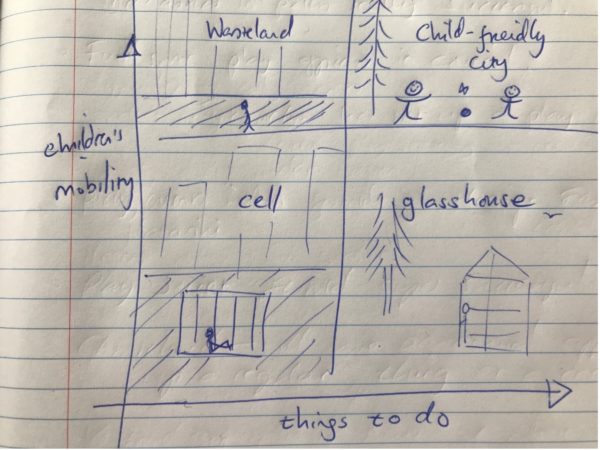 Wasteland
Child-freidly
city
children's
mobility
cell
glasshouse
things to do